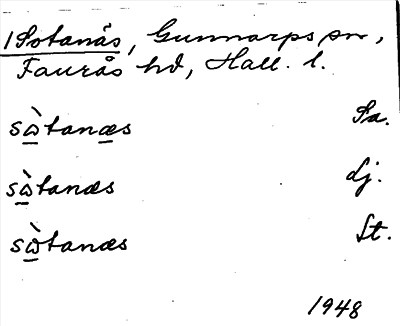 1 Sotanäs, Gunnarps sn,
Faurås hd, Hall. l.
sὼ̲tanæ̲s Sa.
sὼ̲tanæs dj.
sὼ̲tanæs St.
1948